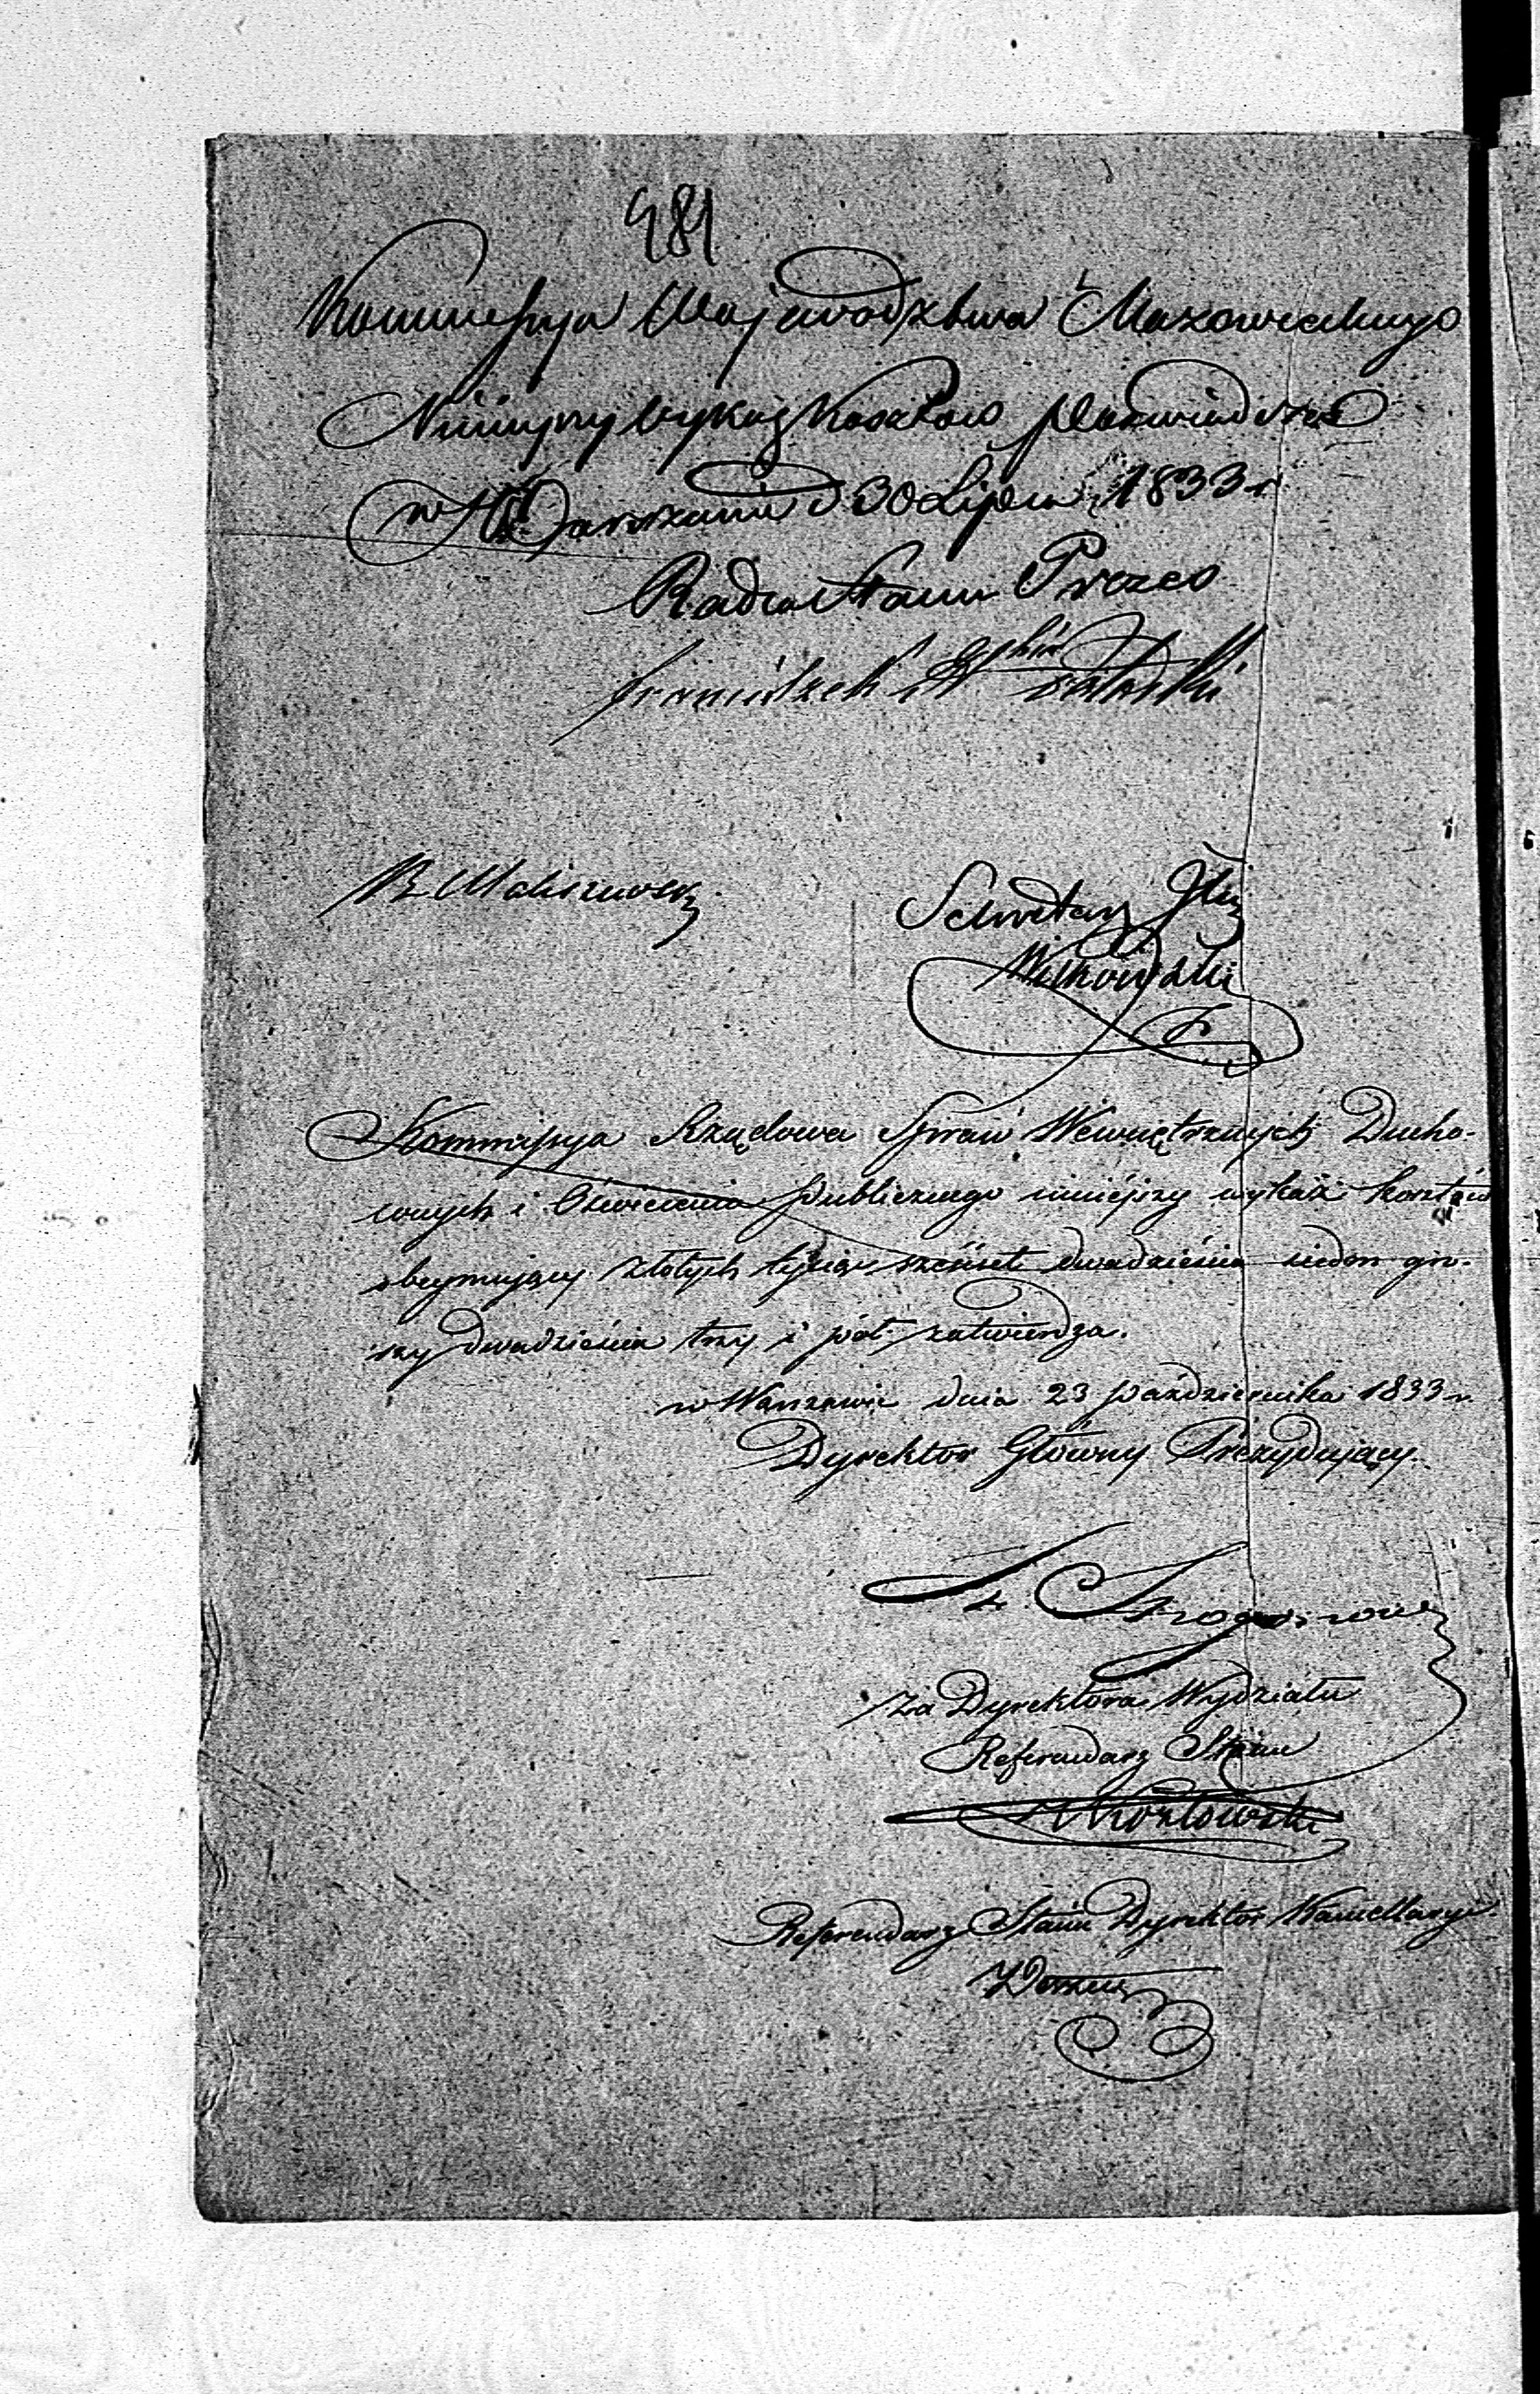 481
Kommissya Wojewodztwa Mazowieckiego
Niniejszy wykaz Kosztow poswiadcza
w Warszawie d 30 Lipca 1833 r
Radca Stanu Prezes
Franciszek
R Maliszewski
Sekretarz Jlny
Witkowski
Kommissya Rządowa Spraw Wewnętrznych Ducho-
wnych i Oświecenia publicznego niniéjszy wykaz kosztów
obeymujący złotych tysiąc sześćset dwadzieścia siedm gro-
szy dwadzieścia trzy i pół zatwierdza.
w Warszawie dnia 23 października 1833 r.
Dyrektor Główny Prezydujący.
Strogonow
Za Dyrektora Wydziału
Referendarz Stanu
Kozłowski
Referendarz Stanu Dyrektor Kancellaryi